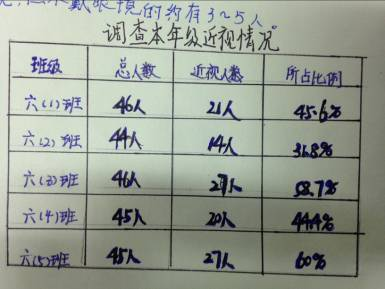 不戴眼镜的约有3~5人。
调查本年级近视情况
班级 总人数 近视人数 所占比例
六(1)班 46人 21人 45.6%
六(2)班 44人 14人 31.8%
六(3)班 46人 27人 58.7%
六(4)班 45人 20人 44.4%
六(5)班 45人 27人 60%